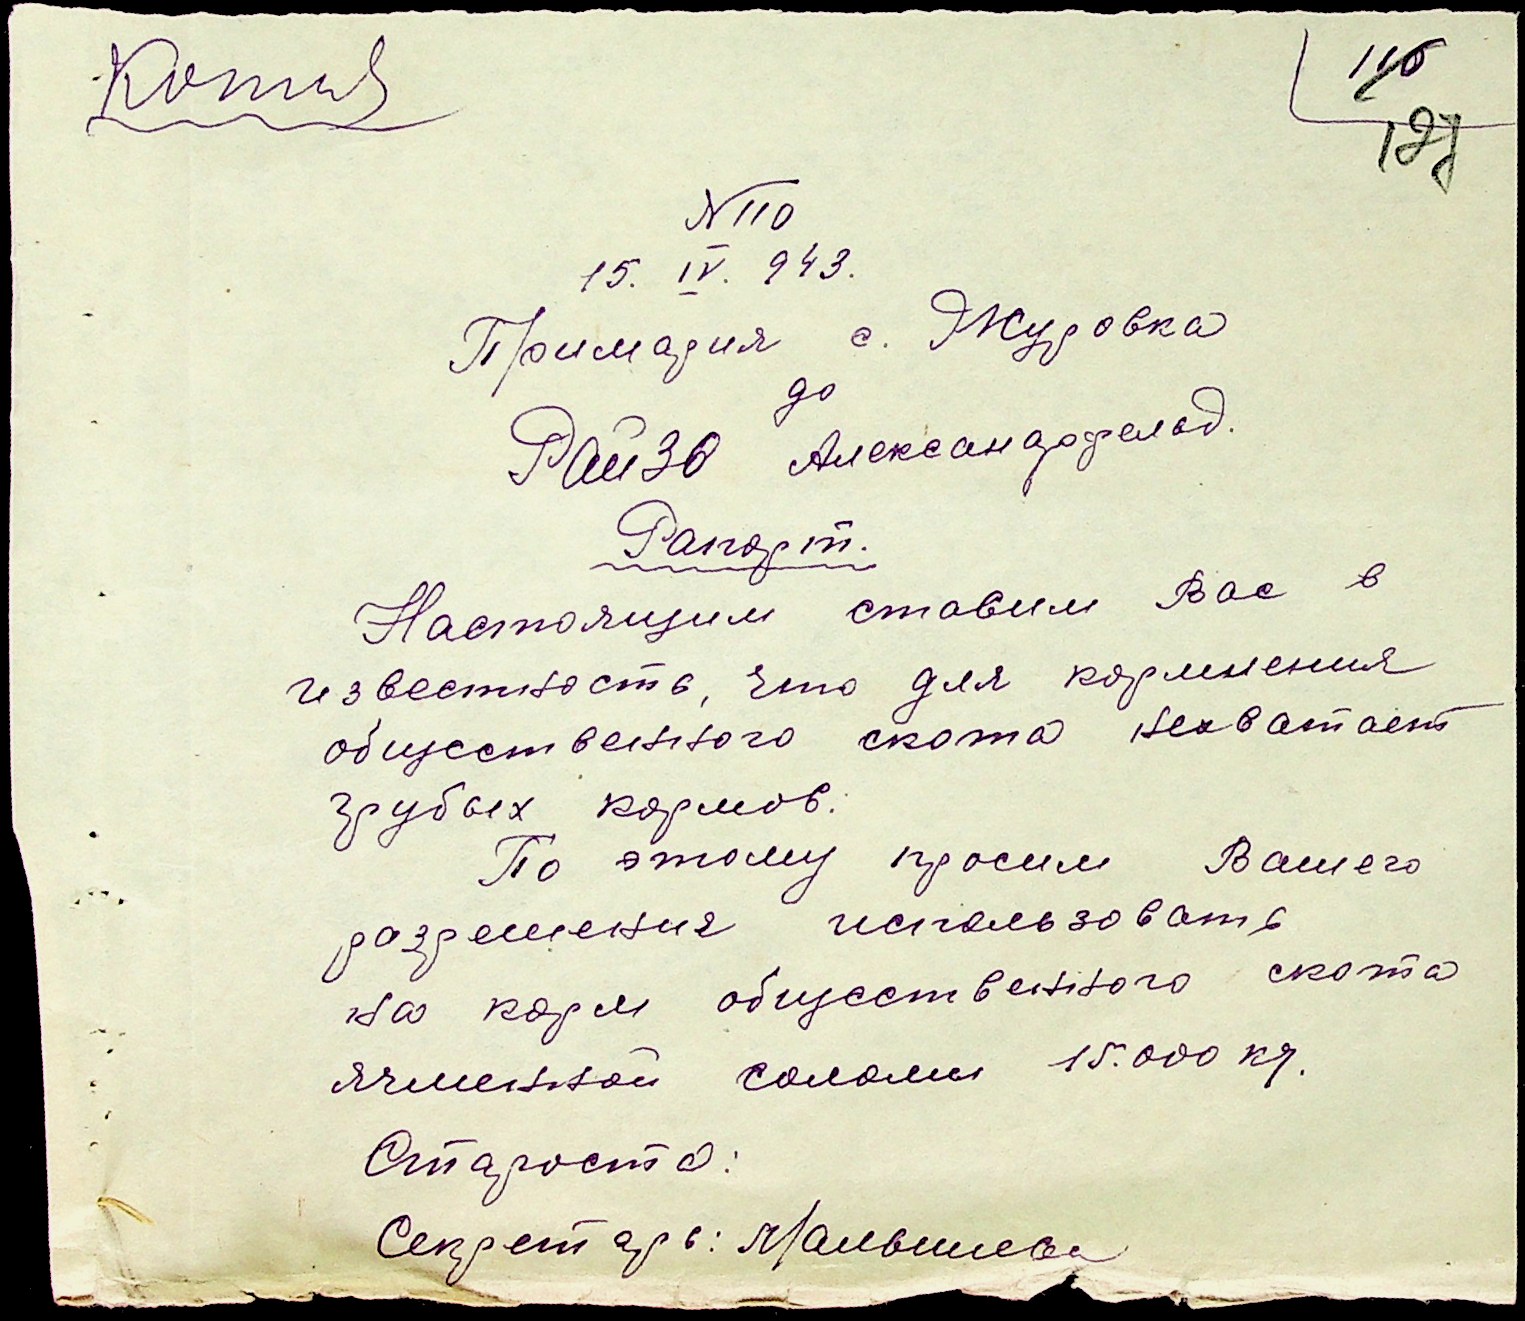 Копия
116
127
№ 110
15. IV. 943.
Примария с. Журовка
до
РайЗО Александрфельд.
Рапорт.
Настоящим ставим Вас в
известность, что для кормления
общественного скота нехватает
грубых кормов.
По этому просим Вашего
разрешения использовать
на корм общественного скота
ячменной соломы 15.000 кг.
Староста:
Секретарь: